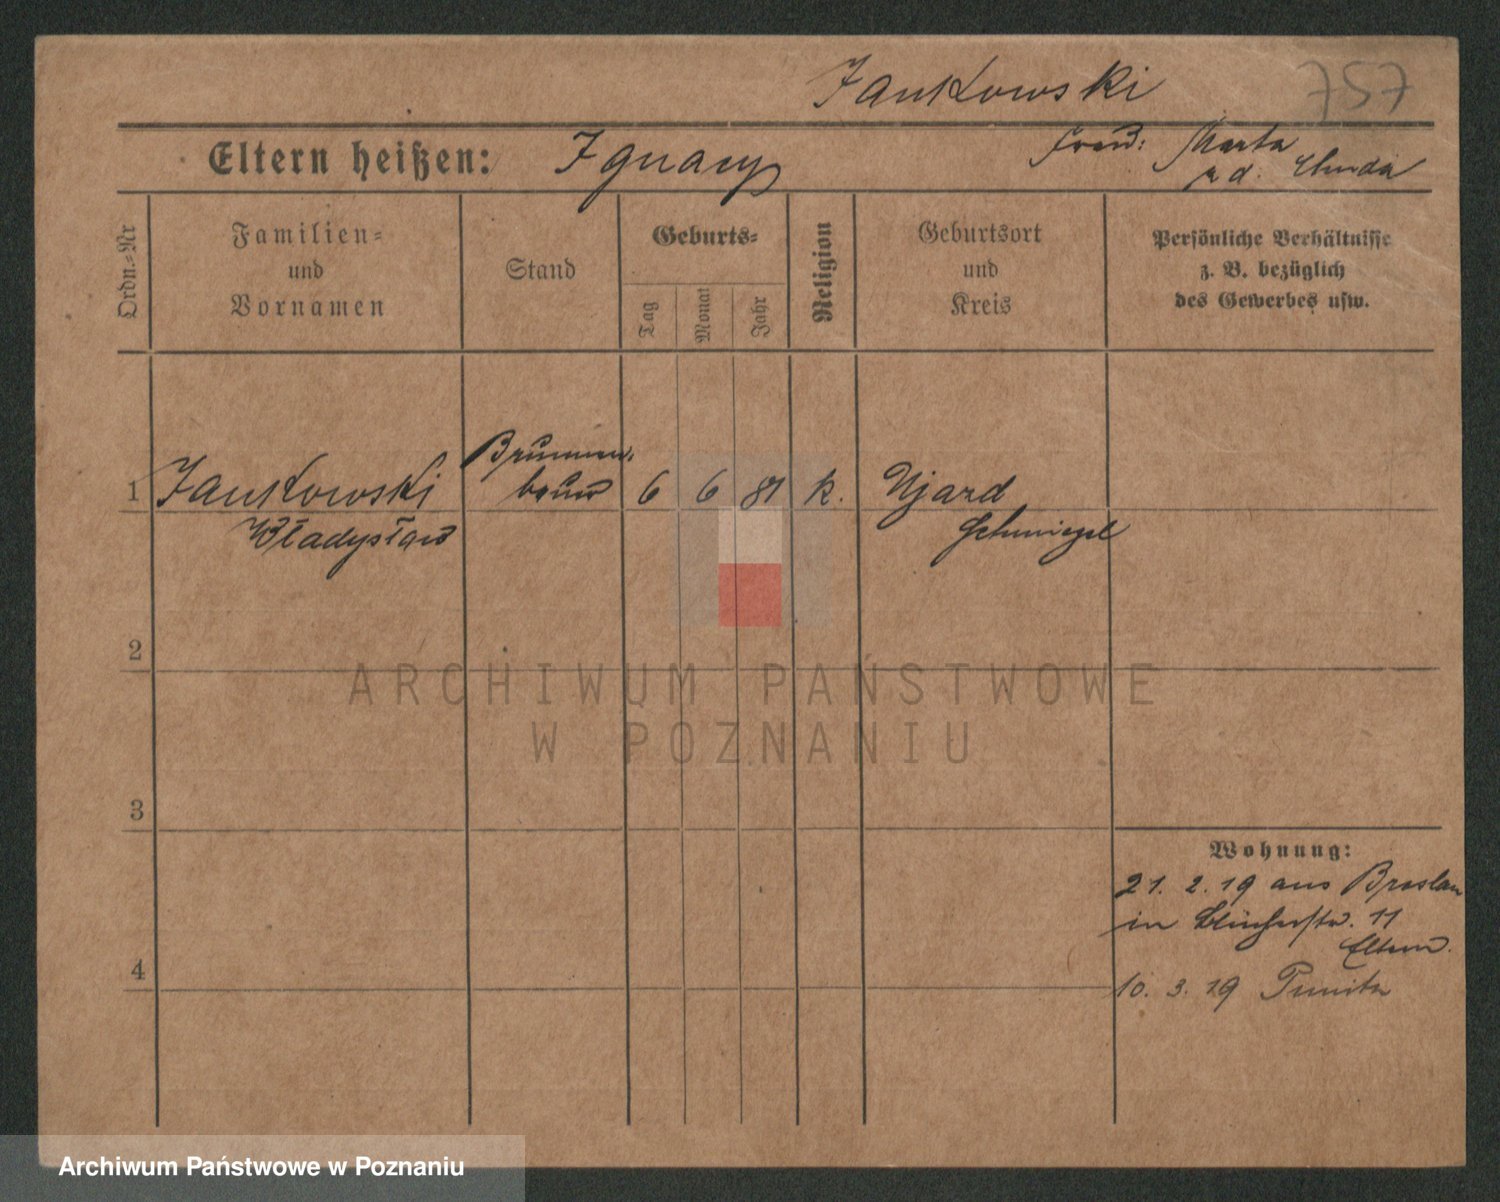 Jankowski
757
Eltern heißen: Ignacy
Marta
Ordn.-Nr
Familien-
und
Vornamen
Stand
Geburts-
Tag
Monat
Jahr
Religion
Geburtsort
und
Kreis
Persönliche Verhältnisse
z. B. bezüglich
des Gewerbes usw.
Brunnen-
1 Jankowski 6 6 81 k. Ujazd
Władysław Schmiegel
2
ARCHIWUM PAŃSTWOWE
W POZNANIU
3
Wohnung:
21. 2. 19 aus Breslau
in Blücherstr. 11
Eltern.
4
10. 3. 19
Archiwum Państwowe w Poznaniu